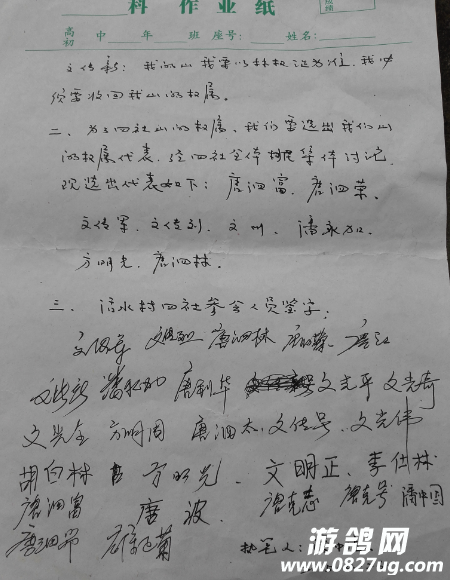 科作业纸
成绩
高初 中 年 班 座号: 姓名:
文传新: 我的山我要以林权证为准, 我必
须要收回我山的权属。
二、为了四社山的权属, 我们要选出我们山
的权属代表, 经四社全体村民集体讨论,
现选出代表如下: 唐泗富、唐泗荣、
文传军、文传利、文州、潘永加、
方明光、唐泗林。
三、活水村四社参会人员签字:
文传军 唐泗林
唐利华 文光平 文光奇
文光全 方明周 唐泗太、文传号、文光伟
胡白林 方明光、文明正、李仕林
唐泗富 唐波、唐克志 唐克号
执笔人:
游鸽网
www.0827ug.com